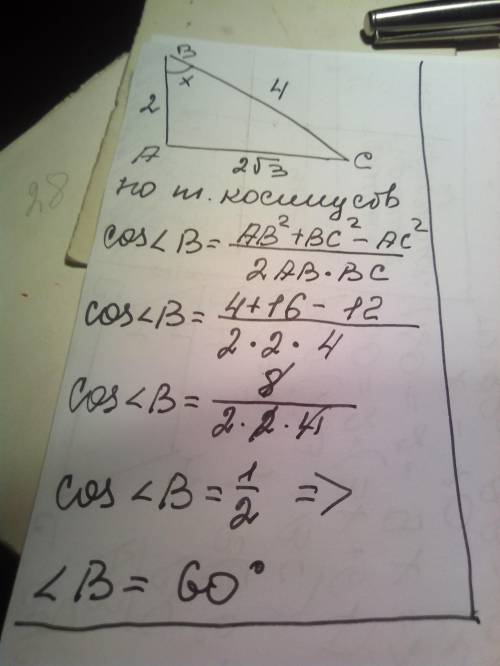 B
x
4
2
A
2√3
C
28
по т. косинусов
cos∠B = AB² + BC² - AC² / 2AB · BC
cos∠B = 4 + 16 - 12 / 2 · 2 · 4
cos∠B = 8 / 2 · 2 · 4
cos∠B = 1/2 =>
∠B = 60°